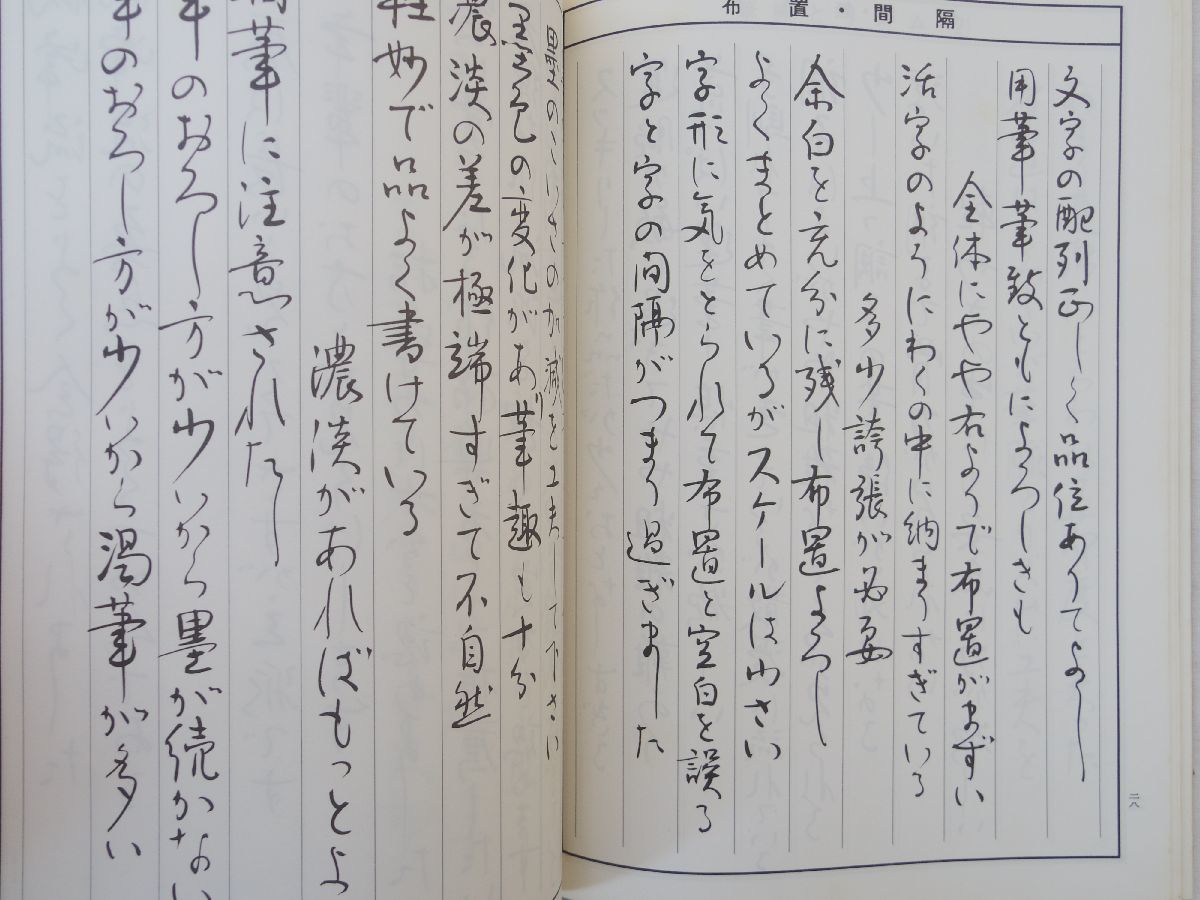 布置・間隔
文字の配列正しく品位ありてよし
用筆筆致ともによろしきも
全体にやや右よりで布置がまずい
活字のようにわくの中に納まりすぎている
多少誇張が必要
余白を充分に残し布置よろし
よくまとめているがスケールは小さい
字形に気をとられて布置と空白を誤る
字と字の間隔がつまり過ぎました
二八
墨のつけ方の加減を工夫して下さい
墨色の変化があり筆趣も十分
濃淡の差が極端すぎて不自然
軽妙で品よく書けている
濃淡があればもっとよ
渇筆に注意されたし
筆のおろし方が少いから墨が続かない
筆のおろし方が少いから渇筆が多い